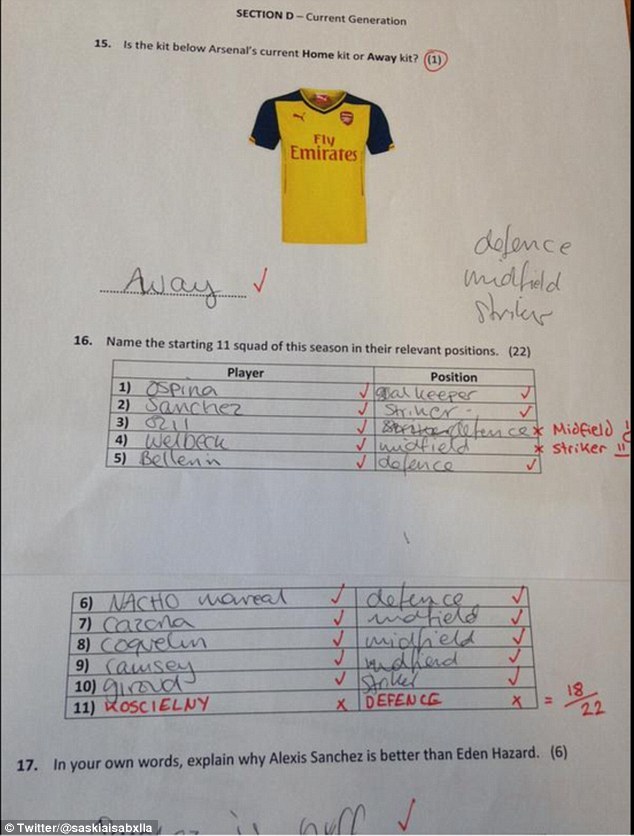 SECTION D – Current Generation
15. Is the kit below Arsenal's current Home kit or Away kit? (1)
Fly
Emirates
defence
midfield
striker
Away ✓
16. Name the starting 11 squad of this season in their relevant positions. (22)
Player Position
1) Ospina ✓ goal keeper ✓
2) Sanchez ✓ Striker - ✓
3) Ozil ✓ defence × Midfield
4) Welbeck ✓ midfield × Striker !!
5) Bellerin ✓ defence ✓
6) NACHO monreal ✓ defence ✓
7) Cazorla ✓ midfield ✓
8) Coquelin ✓ midfield ✓
9) ramsey ✓ midfield ✓
10) giroud ✓ striker ✓
11) KOSCIELNY × DEFENCE × = 18/22
17. In your own words, explain why Alexis Sanchez is better than Eden Hazard. (6)
is buff ✓
© Twitter/@saskiaisabxlla